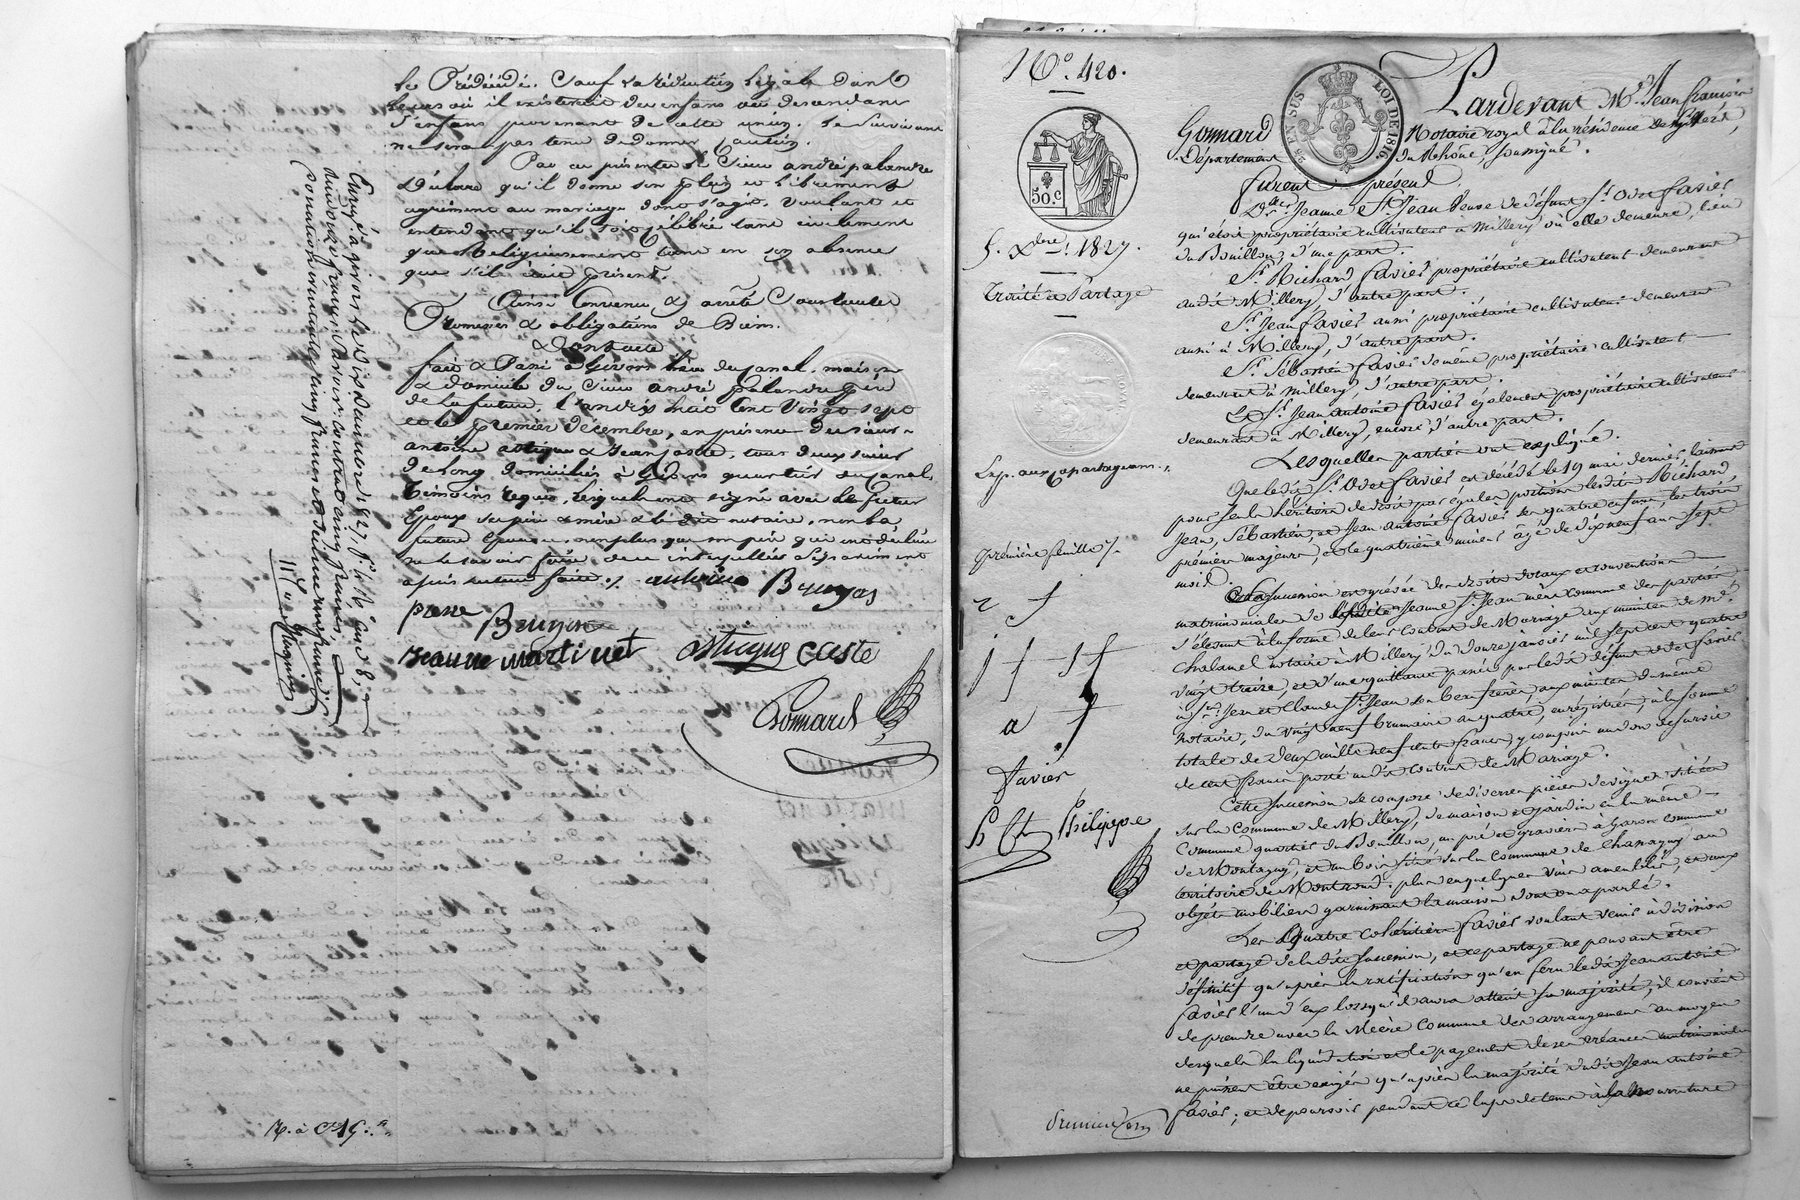 le Prédécédé. Sauf la réduction légale dans
le cas où il existerait des enfans ou descendans
d'enfans provenant de cette union. le Survivant
ne sera pas tenu de donner caution.
Par ces présentes le Sieur andré palandre
Déclare qu'il donne son plein et librement
agrément au mariage dont s'agit. Voulant et
entendant qu'il soit célébré tant civilement
que Religieusement tant en son absence
que s'il était présent.
Ainsi Convenu & arrêté Sous toutes
Promesses & obligations de Biens.
Dont acte
fait & Passé à Givors lieu du Canal, maison
& domicile du Sieur andré palandre père
de la future, l'an dix huit Cent Vingt Sept
et le premier décembre, en présence des sieurs
antoine & Jean Coste, tous deux
de long domiciliés à Givors quartier du Canal,
témoins requis, lesquels ont signé avec le futur
Epoux ses père & mère & le dit notaire, non la
future Epouse, non plus que son père qui ont déclaré
ne le savoir faire, de ce interpellés séparément
après lecture faite ./. antoine Bruyas
pierre Bruyas
jeanne martinet coste
Gonnard
Enregé à givors le dix décembre 1827. f° 146
Reçu pour contrat cinq francs,
M. à
N°. 420.
50. C
5. Xbre. 1827.
Traité & Partage
Exp. aux copartageans.
première feuille ./.
Favier
Philippe
25 EN SUS LOI DE 1816
Pardevant Me. Jean françois
Gonnard Notaire royal à la résidence de
Département du Rhône, soussigné.
furent présens
De. Jeanne St. Jean Veuve de défunt Sr. Odet favier
qu'étoit propriétaire cultivateur à Millery où elle demeure, lieu
du Bouillon, d'une part.
Sr. Richard favier propriétaire cultivateur demeurant
audit Millery, d'autre part.
Sr. Jean favier aussi propriétaire cultivateur demeurant
aussi à Millery, d'autre part.
Sr. Sébastien favier de même propriétaire cultivateur
demeurant à Millery, d'autre part.
Et Sr. Jean antoine favier également propriétaire cultivateur
demeurant à Millery, encore d'autre part.
Lesquelles parties ont expliqué.
Que ledit Sr. Odet favier est décédé le 19 mai dernier laissant
pour seuls héritiers de droit par égales portions lesdits Richard,
Jean, Sébastien, et Jean antoine favier ses quatre enfans, les trois
premiers majeurs, et le quatrième mineur âgé de dix neuf ans sept
mois.
Cette succession est grévée des droits dotaux et conventions
matrimoniales de ladite Jeanne St. Jean mère commune des parties
s'élevant à la forme de leur contrat de Mariage aux minutes de Me.
Chalamel notaire à Millery du douze janvier mil sept cent quatre
vingt treize, et d'une quittance passée par ledit défunt Odet favier
à Srs. Jean et Claude St. Jean son beau frère, aux minutes du même
notaire, du vingt neuf brumaire an quatre, enregistrée, à la somme
totale de deux mille neuf cents francs, y compris un don de survie
de cent francs porté audit contrat de Mariage.
Cette succession se compose de diverses pièces de vignes situées
sur la commune de Millery, de maison et jardin en la même
commune quartier du Bouillon, un pré et gravière à Garon commune
de Montagny, et un bois situé sur la commune de Chassagny au
territoire de Montrond; plus en quelques vins, meubles, et aux
objets mobiliers garnissant la maison dont on a parlé.
Les Quatre cohéritiers favier voulant venir à division
et partage de la dite succession, et ce partage ne pouvant être
définitif qu'après la ratification qu'en fera ledit Jean antoine
favier l'un d'eux lorsqu'il aura atteint sa majorité, il convient
de prendre avec la Mère commune des arrangemens au moyen
desquels la liquidation et le payement de ses créances matrimoniales
ne puissent être exigés qu'après la majorité dudit Jean antoine
favier; et de pourvoir pendant ce laps de tems à la nourriture